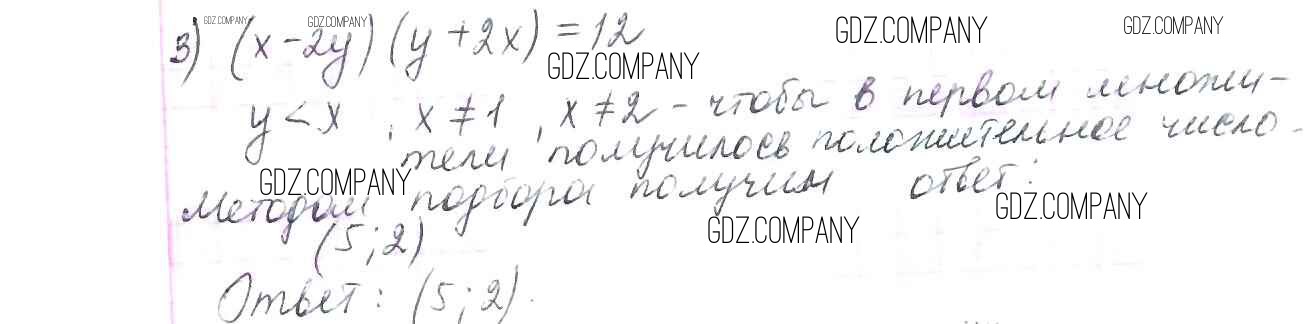 3) (x-2y)(y+2x)=12
GDZ.COMPANY GDZ.COMPANY GDZ.COMPANY GDZ.COMPANY
GDZ.COMPANY
y<x, x≠1, x≠2 - чтобы в первом множи-
тели получилось положительное число.
GDZ.COMPANY
Методом подбора получим ответ:
GDZ.COMPANY
(5;2)
GDZ.COMPANY
Ответ: (5;2).